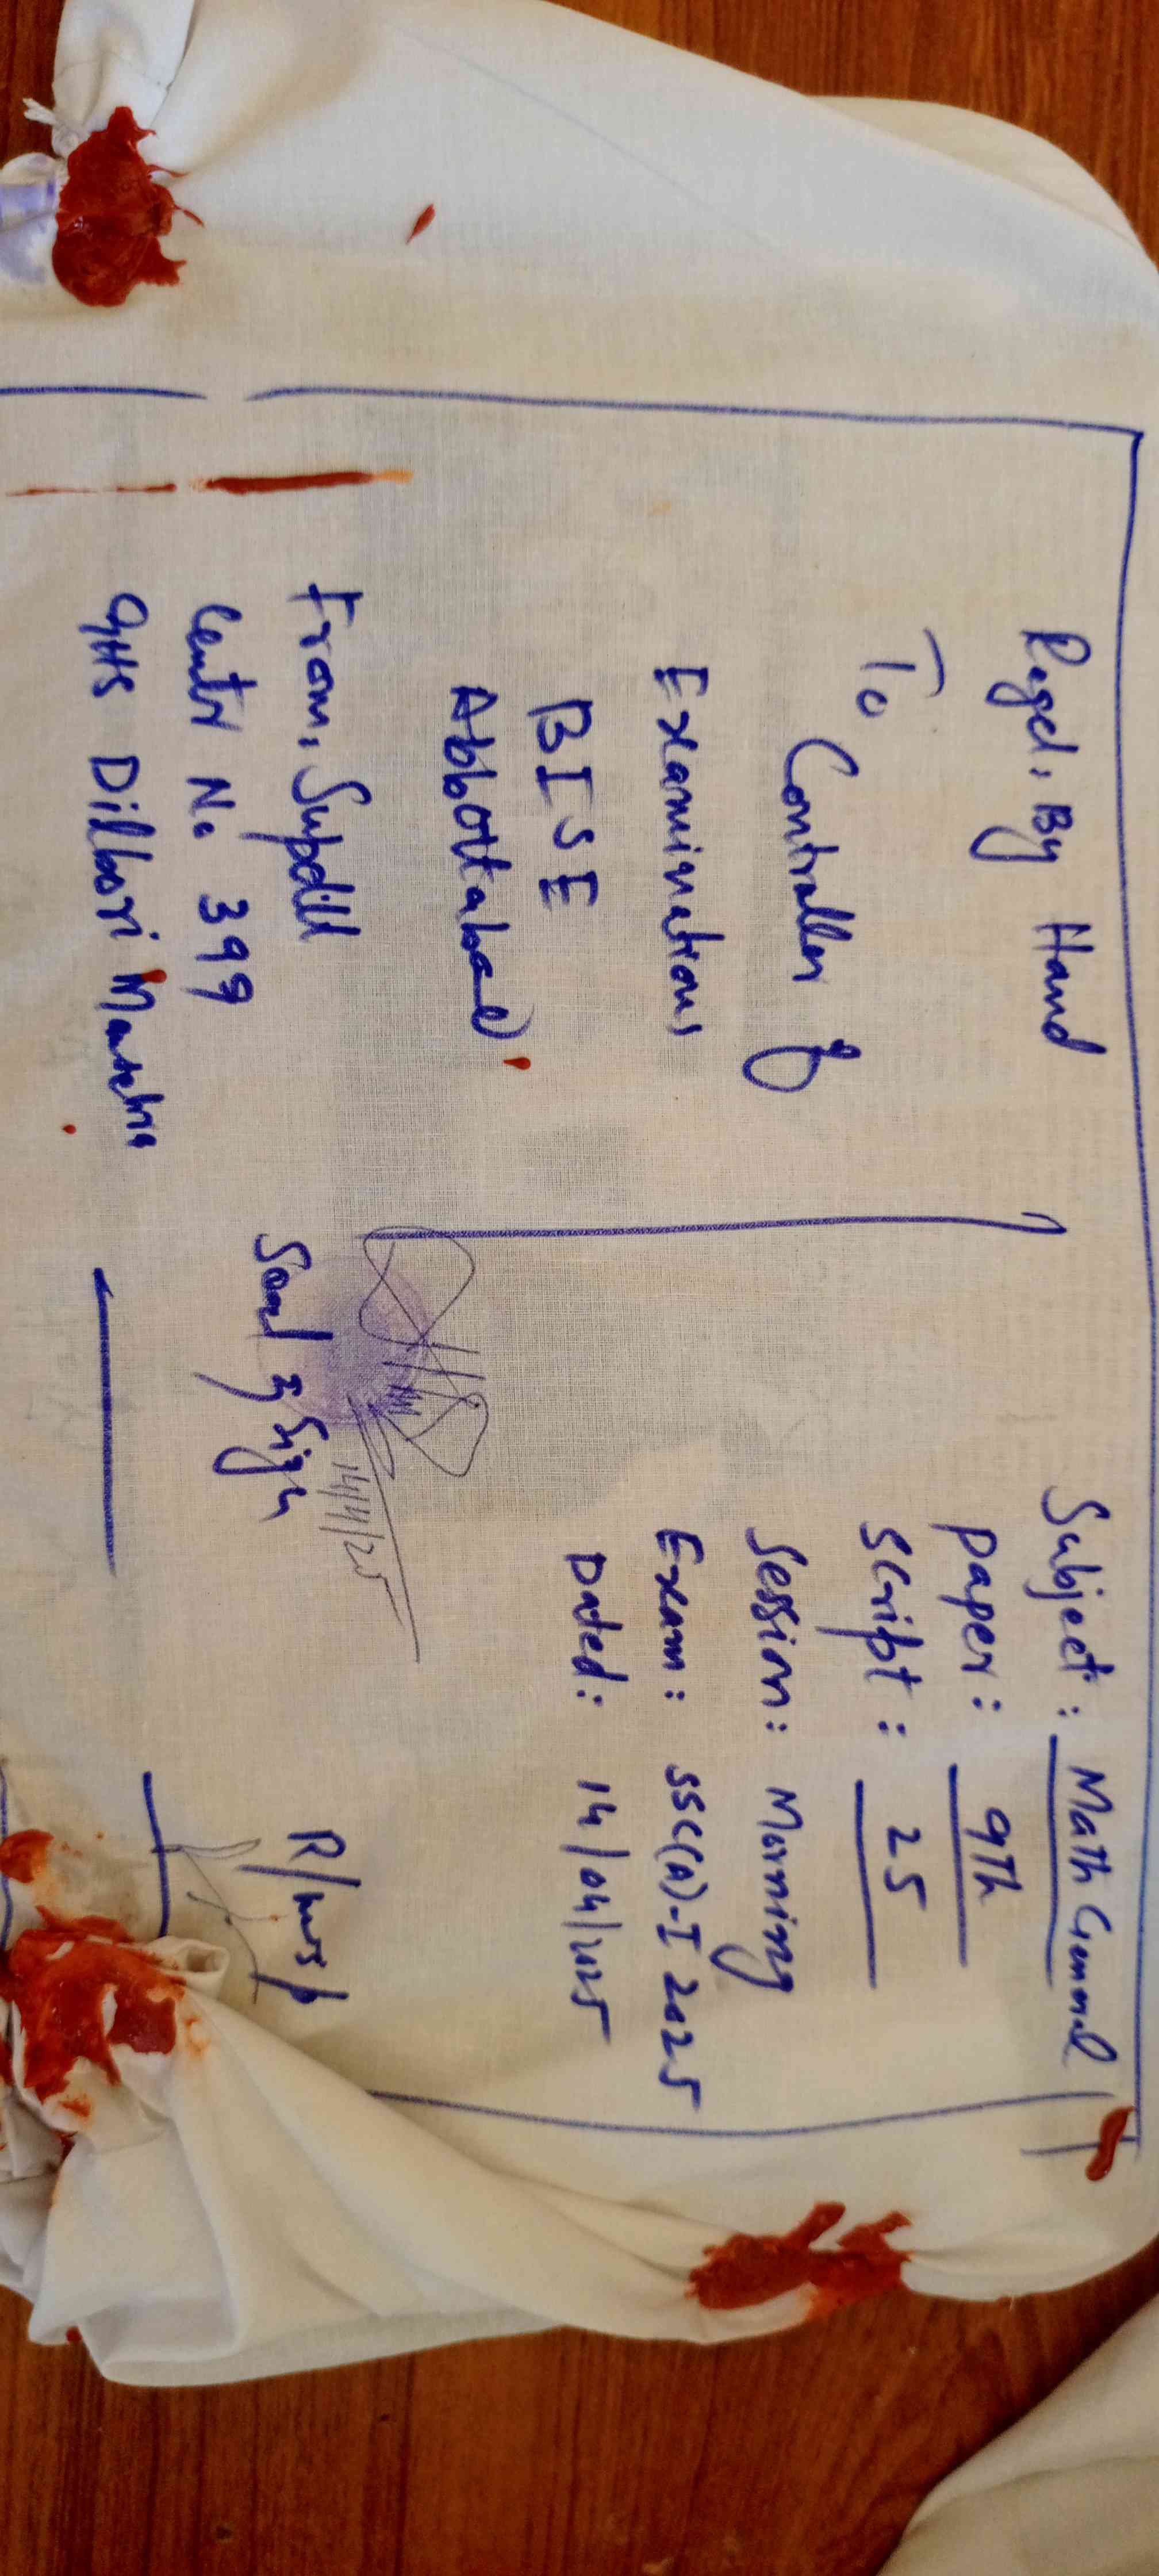 Regd. By Hand
To
Controller of
Examinations
BISE
Abbottabad
From, Supdtt
Centr No 399
GHS Dilbori Mansehra
Subject: Math General
Paper: 9th
Script: 25
Session: Morning
Exam: SSC(A)-I 2025
Dated: 14/04/2025
14/4/25
Seal & Sign